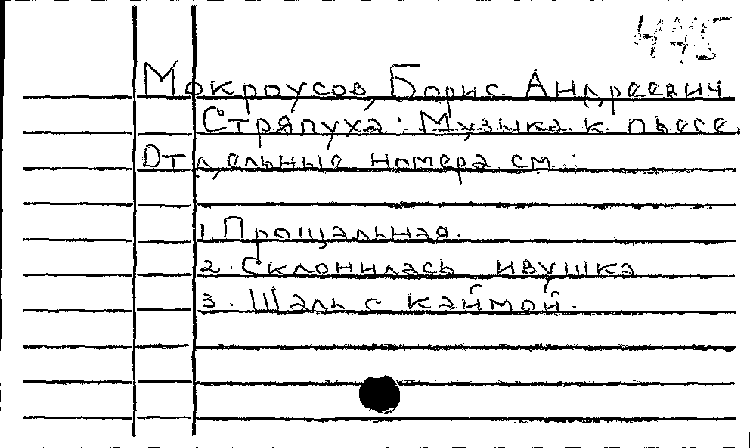 445
Мокроусов, Борис Андреевич
Стряпуха: Музыка к пьесе.
Отдельные номера см.:
1. Прощальная.
2. Склонилась ивушка
3. Шаль с каймой.